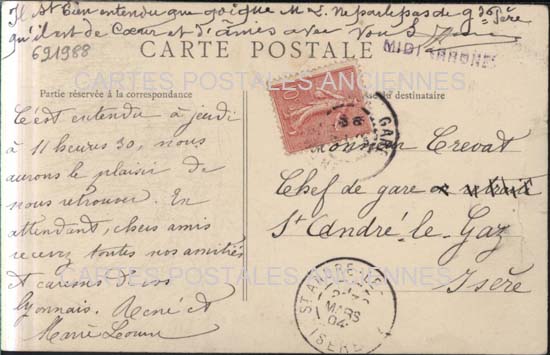 Il est bien entendu que quoique M L. ne parle pas de
qu'il est de Cœur et d'âmes avec vous
691988
CARTE POSTALE
MIDI
CARTES POSTALES ANCIENNES
Partie réservée à la correspondance
du destinataire
C'est entendu à jeudi
à 11 heures 30, nous
aurons le plaisir de
nous retrouver. En
attendant, chers amis
recevez toutes nos amitiés
et caresses de vos
lyonnais. René et
Marie Louise
GARE
Monsieur Crevat
Chef de gare
St André-le-Gaz
Isère
CARTES POSTALES ANCIENNES
ST ANDRE
MARS
04
ISERE